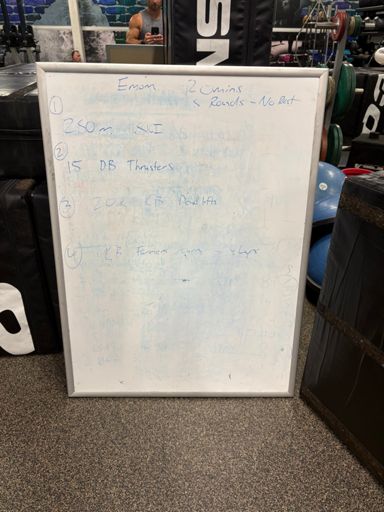 Emom 20mins
5 Rounds - No Rest
1
250m SKI
2
15 DB Thrusters
3
20x KB Deadlifts
4
KB Farmers